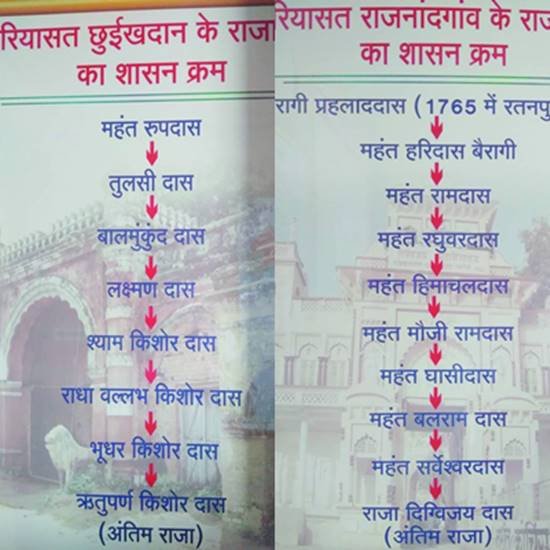 रियासत छुईखदान के राजा
का शासन क्रम
महंत रुपदास
तुलसी दास
बालमुंकुंद दास
लक्ष्मण दास
श्याम किशोर दास
राधा वल्लभ किशोर दास
भूधर किशोर दास
ऋतुपर्ण किशोर दास
(अंतिम राजा)
रियासत राजनांदगाव के राज
का शासन क्रम
रागी प्रहलाददास (1765 में रतनपु
महंत हरिदास बैरागी
महंत रामदास
महंत रघुवरदास
महंत हिमाचलदास
महंत मौजी रामदास
महंत घासीदास
महंत बलराम दास
महंत सर्वेश्वरदास
राजा दिग्विजय दास
(अंतिम राजा)